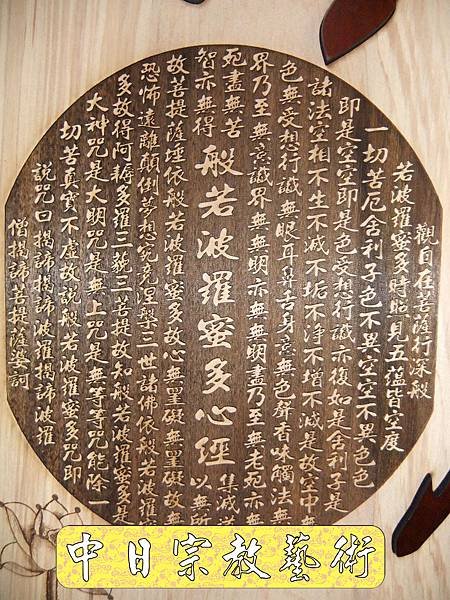 觀自在菩薩行深般
若波羅蜜多時照見五蘊皆空度
一切苦厄舍利子色不異空空不異色色
即是空空即是色受想行識亦復如是舍利子是
諸法空相不生不滅不垢不淨不增不減是故空中無
色無受想行識無眼耳鼻舌身意無色聲香味觸法無
界乃至無意識界無無明亦無無明盡乃至無老死亦無
死盡無苦
集滅道
般若波羅蜜多心經
智亦無得
以無所
故菩提薩埵依般若波羅蜜多故心無罣礙無罣礙故無
恐怖遠離顛倒夢想究竟涅槃三世諸佛依般若波羅蜜
多故得阿耨多羅三藐三菩提故知般若波羅蜜多是
大神咒是大明咒是無上咒是無等等咒能除一
切苦真實不虛故說般若波羅蜜多咒即
說咒曰揭諦揭諦波羅揭諦波羅
僧揭諦菩提薩婆訶
中日宗教藝術